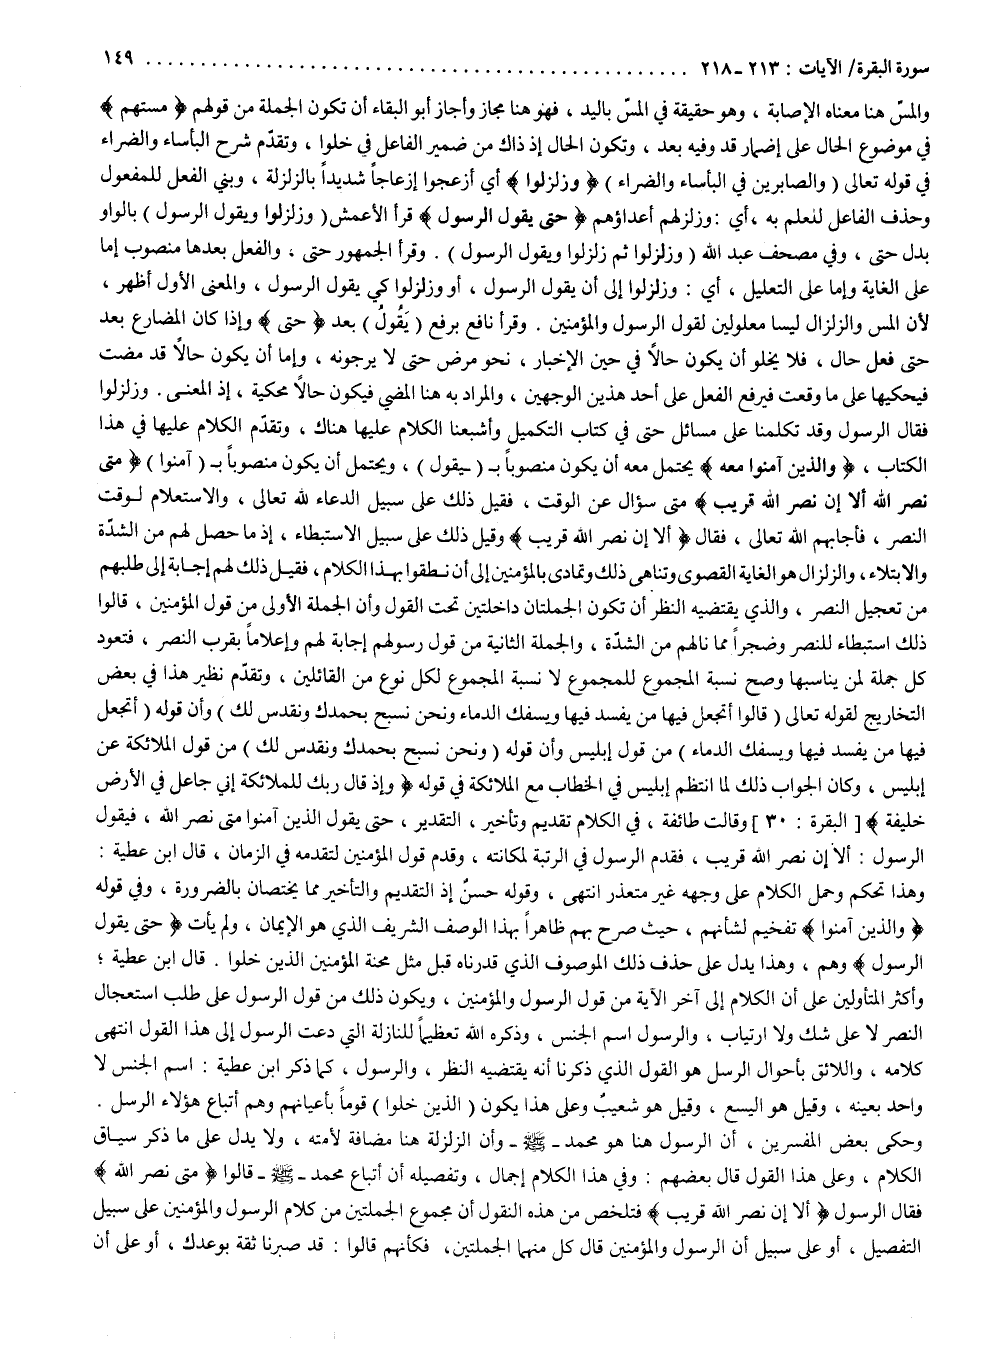 سورة البقرة/ الآيات : ٢١٣ -٢١٨ ................................................ ١٤٩
والمسّ هنا معناه الإصابة ، وهو حقيقة في المسّ باليد ، فهو هنا مجاز وأجاز أبو البقاء أن تكون الجملة من قولهم ﴿ مستهم ﴾
في موضوع الحال على إضمار قد وفيه بعد ، وتكون الحال إذ ذاك من ضمير الفاعل في خلوا ، وتقدّم شرح البأساء والضراء
في قوله تعالى ( والصابرين في البأساء والضراء ) ﴿ وزلزلوا ﴾ أي أزعجوا إزعاجاً شديداً بالزلزلة ، وبني الفعل للمفعول
وحذف الفاعل للعلم به ،أي :وزلزلهم أعداؤهم ﴿ حتى يقول الرسول ﴾ قرأ الأعمش( وزلزلوا ويقول الرسول ) بالواو
بدل حتى ، وفي مصحف عبد الله ( وزلزلوا ثم زلزلوا ويقول الرسول ) . وقرأ الجمهور حتى ، والفعل بعدها منصوب إما
على الغاية وإما على التعليل ، أي : وزلزلوا إلى أن يقول الرسول ، أو وزلزلوا كي يقول الرسول ، والمعنى الأول أظهر ،
لأن المس والزلزال ليسا معلولين لقول الرسول والمؤمنين . وقرأ نافع برفع ( يَقُولُ ) بعد ﴿ حتى ﴾ وإذا كان المضارع بعد
حتى فعل حال ، فلا يخلو أن يكون حالاً في حين الإخبار ، نحو مرض حتى لا يرجونه ، وإما أن يكون حالاً قد مضت
فيحكيها على ما وقعت فيرفع الفعل على أحد هذين الوجهين ، والمراد به هنا المضي فيكون حالاً محكية ، إذ المعنى . وزلزلوا
فقال الرسول وقد تكلمنا على مسائل حتى في كتاب التكميل وأشبعنا الكلام عليها هناك ، وتقدّم الكلام عليها في هذا
الكتاب ، ﴿ والذين آمنوا معه ﴾ يحتمل معه أن يكون منصوباً بـ ( ـيقول ) ، ويحتمل أن يكون منصوباً بـ ( آمنوا ) ﴿ متى
نصر الله ألا إن نصر الله قريب ﴾ متى سؤال عن الوقت ، فقيل ذلك على سبيل الدعاء لله تعالى ، والاستعلام لوقت
النصر ، فأجابهم الله تعالى ، فقال ﴿ ألا إن نصر الله قريب ﴾ وقيل ذلك على سبيل الاستبطاء ، إذ ما حصل لهم من الشدّة
والابتلاء، والزلزال هو الغاية القصوى وتناهى ذلك وتمادى بالمؤمنين إلى أن نطقوا بهذا الكلام ، فقيل ذلك لهم إجابة إلى طلبهم
من تعجيل النصر ، والذي يقتضيه النظر أن تكون الجملتان داخلتين تحت القول وأن الجملة الأولى من قول المؤمنين ، قالوا
ذلك استبطاء للنصر وضجراً مما نالهم من الشدّة ، والجملة الثانية من قول رسولهم إجابة لهم وإعلاماً بقرب النصر ، فتعود
كل جملة لمن يناسبها وصح نسبة المجموع للمجموع لا نسبة المجموع لكل نوع من القائلين ، وتقدّم نظير هذا في بعض
التخاريج لقوله تعالى ( قالوا أتجعل فيها من يفسد فيها ويسفك الدماء ونحن نسبح بحمدك ونقدس لك ) وأن قوله ( أتجعل
فيها من يفسد فيها ويسفك الدماء ) من قول إبليس وأن قوله ( ونحن نسبح بحمدك ونقدس لك ) من قول الملائكة عن
إبليس ، وكان الجواب ذلك لما انتظم إبليس في الخطاب مع الملائكة في قوله ﴿ وإذ قال ربك للملائكة إني جاعل في الأرض
خليفة ﴾ [ البقرة : ٣٠ ] وقالت طائفة ، في الكلام تقديم وتأخير ، التقدير ، حتى يقول الذين آمنوا متى نصر الله ، فيقول
الرسول : ألا إن نصر الله قريب ، فقدم الرسول في الرتبة لمكانته ، وقدم قول المؤمنين لتقدمه في الزمان ، قال ابن عطية :
وهذا تحكم وحمل الكلام على وجهه غير متعذر انتهى ، وقوله حسنٌ إذ التقديم والتأخير مما يختصان بالضرورة ، وفي قوله
﴿ والذين آمنوا ﴾ تفخيم لشأنهم ، حيث صرح بهم ظاهراً بهذا الوصف الشريف الذي هو الإيمان ، ولم يأت ﴿ حتى يقول
الرسول ﴾ وهم ، وهذا يدل على حذف ذلك الموصوف الذي قدرناه قبل مثل محنة المؤمنين الذين خلوا . قال ابن عطية ؛
وأكثر المتأولين على أن الكلام إلى آخر الآية من قول الرسول والمؤمنين ، ويكون ذلك من قول الرسول على طلب استعجال
النصر لا على شك ولا ارتياب ، والرسول اسم الجنس ، وذكره الله تعظيماً للنازلة التي دعت الرسول إلى هذا القول انتهى
كلامه ، واللائق بأحوال الرسل هو القول الذي ذكرنا أنه يقتضيه النظر ، والرسول ، كما ذكر ابن عطية : اسم الجنس لا
واحد بعينه ، وقيل هو اليسع ، وقيل هو شعيبٌ وعلى هذا يكون ( الذين خلوا ) قوماً بأعيانهم وهم أتباع هؤلاء الرسل .
وحكى بعض المفسرين ، أن الرسول هنا هو محمد - ﷺ - وأن الزلزلة هنا مضافة لأمته ، ولا يدل على ما ذكر سياق
الكلام ، وعلى هذا القول قال بعضهم : وفي هذا الكلام إجمال ، وتفصيله أن أتباع محمد - ﷺ - قالوا ﴿ متى نصر الله ﴾
فقال الرسول ﴿ ألا إن نصر الله قريب ﴾ فتلخص من هذه النقول أن مجموع الجملتين من كلام الرسول والمؤمنين على سبيل
التفصيل ، أو على سبيل أن الرسول والمؤمنين قال كل منهما الجملتين، فكأنهم قالوا : قد صبرنا ثقة بوعدك ، أو على أن